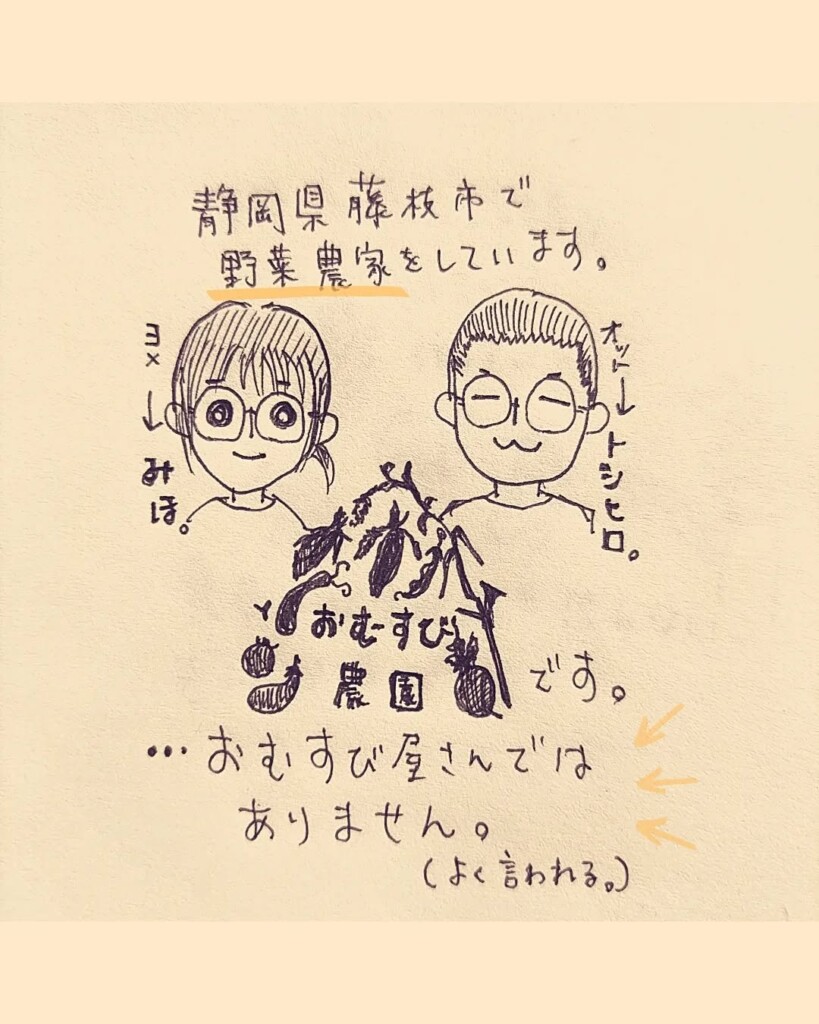 静岡県藤枝市で
野菜農家をしています。
ヨメ→みほ。
オット→トシヒロ。
おむーすび
農園です。
…おむすび屋さんでは
ありません。
(よく言われる。)